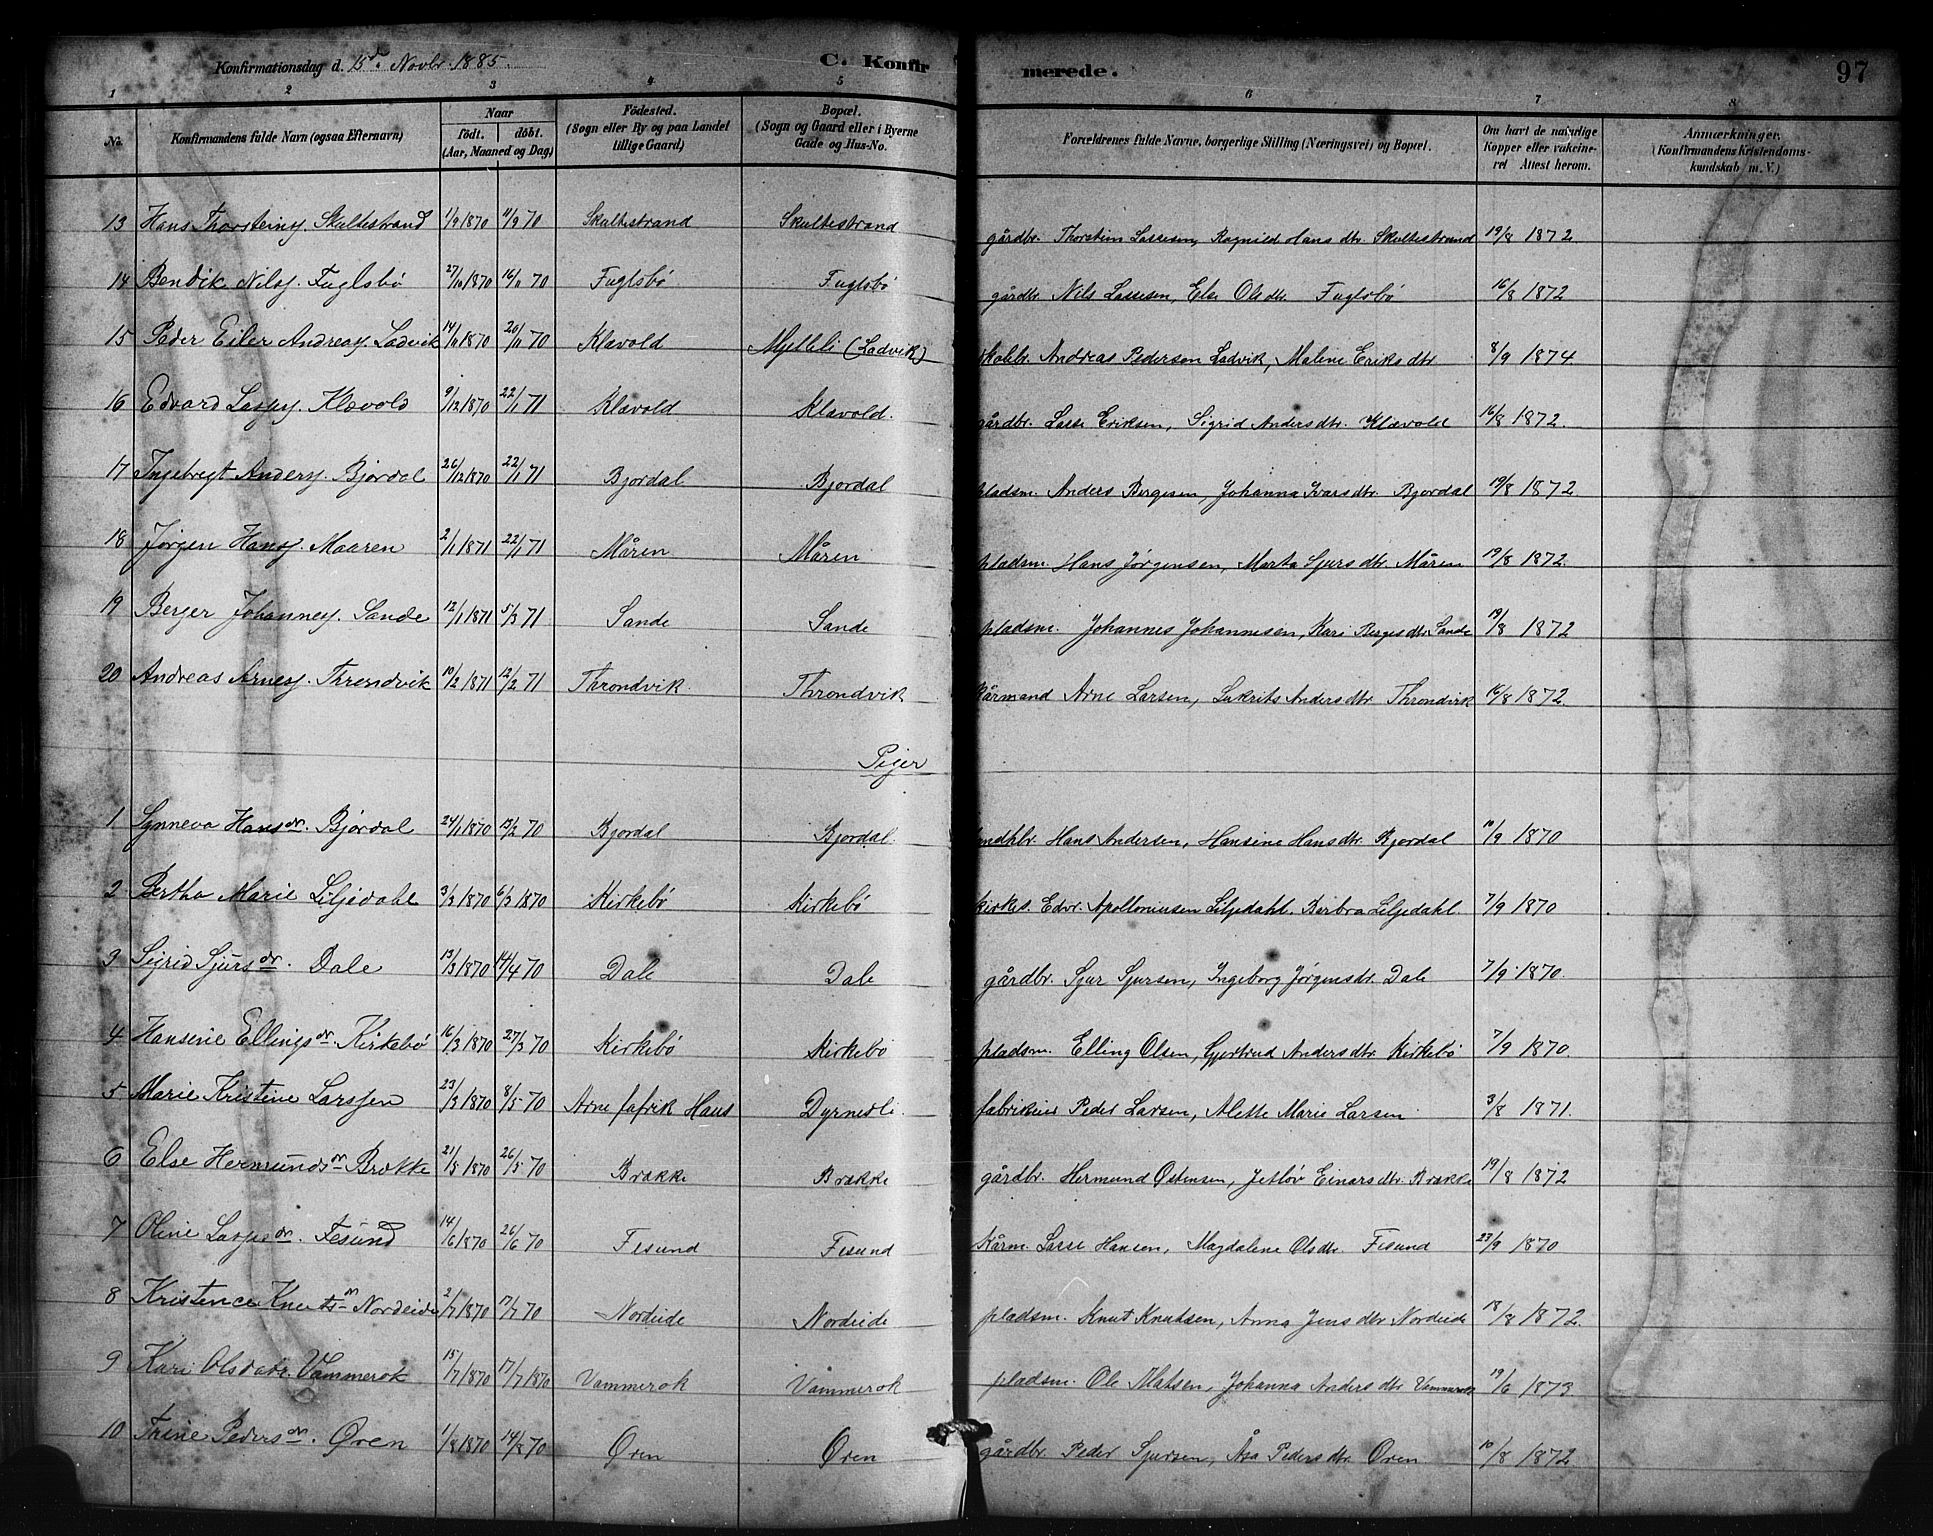 Konfirmationsdag d. 15d. Novbr. 1885. C. Konfirmerede. 97
1 2 3 4 5 6 7 8
No. Konfirmandens fulde Navn (ogsaa Efternavn) Naar födt. döbt. (Aar, Maaned og Dag) Födested. (Sogn eller By og paa Landet tillige Gaard) Bopæl. (Sogn og Gaard eller i Byerne Gade og Hus-No. Forældrenes fulde Navne, borgerlige Stilling (Næringsvei) og Bopæl. Om havt de naturlige Kopper eller vakcineret Attest herom. Anmærkninger. (Konfirmandens Kristendomskundskab m. V.)
13 Hans Thorsteins. Skultestrand 1/9 1870 11/9 70 Skultestrand Skultestrand gårdbr. Thorstein Lassesen, Ragnild Hansdtr. Skultestrand 19/8 1872
14 Bendik Nilss. Fuglsbø 27/10 1870 16/11 70 Fuglsbø Fuglsbø gårdbr. Nils Lassesen, Else Olsdtr. Fuglsbø 16/8 1872
15 Peder Eiler Andreass. Ladvik 14/11 1870 20/11 70 Klævold Mjelleli (Ladvik) skolelr. Andreas Pedersen Ladvik, Malene Eriksdtr 8/9 1874
16 Edvard Lasses. Klævold 9/12 1870 22/1 71 Klævold Klævold. gårdbr. Lasse Eriksen, Sigrid Andersdtr. Klævold 16/8 1872.
17 Ingebregt Anders. Bjordal 26/12 1870 22/1 71 Bjordal Bjordal pladsm. Anders Bergesen, Johanna Ivarsdtr. Bjordal 19/8 1872
18 Jørgen Hanss. Maaren 2/1 1871 22/1 71 Måren Måren pladsm. Hans Jørgensen, Marta Sjursdtr. Måren 19/8 1872.
19 Berger Johanness. Sande 12/1 1871 5/3 71 Sande Sande pladsm. Johannes Johannesen, Kari Bergesdtr. Sande 19/8 1872
20 Andreas Arnes. Throndvik 10/2 1871 12/2 71 Throndvik. Throndvik kårmand Arne Larsen, Andersdtr. Throndvik 16/8 1872.
Piger
1. Synneva Hansdr. Bjørdal 24/1 1870 13/2 70 Bjordal Bjordal. Hans Andersen, Hansine Hansdtr. Bjordal 10/9 1870
2 Bertha Marie Liljedahl 3/3 1870 6/3 1870 Kirkebø Kirkebø kirkes. Edvr. Apolloniusen Liljedahl. Berbra Liljedahl. 7/9 1870
3 Sigrid Sjursdr. Dale 13/3 1870 14/4 70 Dale Dale gårdbr. Sjur Sjursen, Ingeborg Jørgensdtr. Dale 7/9 1870.
4 Hansine Ellingsdr. Kirkebø 16/3 1870 27/3 70 Kirkebø Kirkebø pladsm. Elling Olsen, Gjertrud Andersdtr. Kirkebø 7/9 1870.
5 Marie Kristine Larssen 23/3 1870 8/5 70 Arne fafrik Haus Dyrnesli fabrikeier Peder Larsen, Alette Marie Larsen 3/8 1871.
6 Else Hermundsdr. Brække 21/5 1870 26/5 70 Brække Brække gårdbr. Hermund Østensen, Jetlöv Einarsdtr. Brække 19/8 1872
7 Oline Lassesdr. Fesund 14/6 1870 26/6 70 Fesund Fesund kårm. Lasse Hansen, Magdalene Olsdtr. Fesund 23/9 1870
8 Kristence Knutsdr. Nordeide 2/7 1870 17/7 70 Nordeide Nordeide pladsm. Knut Knutsen, Anna Jensdtr Nordeide 18/8 1872.
9 Kari Olsdatr. Vammerok 15/7 1870 17/7 1870 Vammerok Vammerok pladsm. Ole Matsen, Johanna Andersdtr Vammerok 19/6 1873
10 Trine Pedersdr. Øren 1/8 1870 14/8 70 Øren Øren gårdbr. Peder Sjursen, Åsa Pedersdtr. Øren 10/8 1872